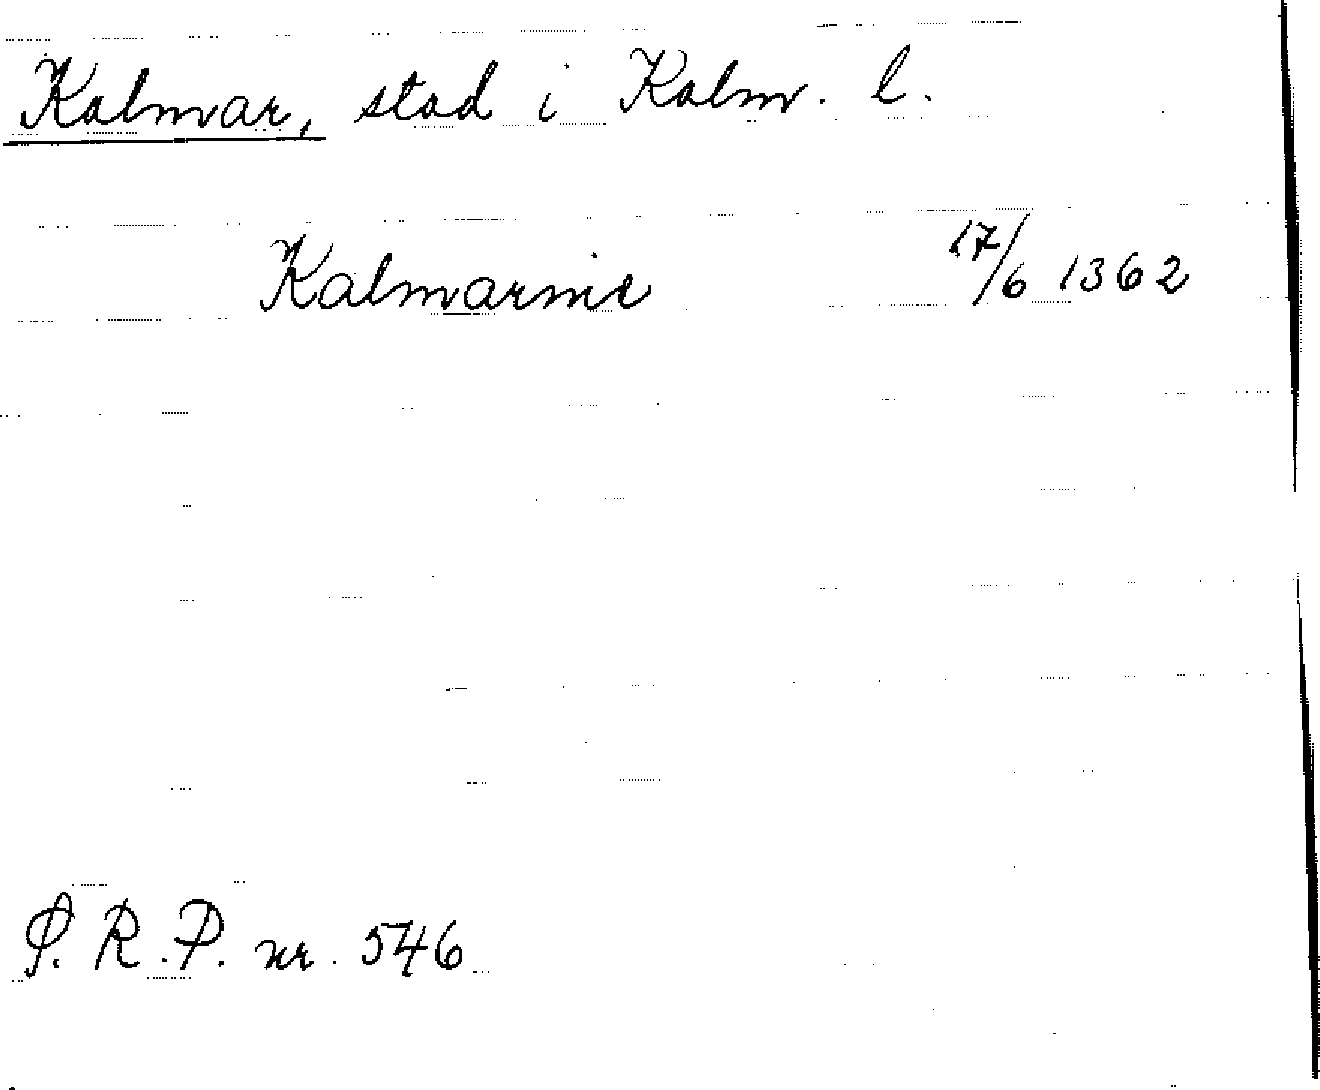 Kalmar, stad i Kalm. l.
Kalmarnie 17/6 1362
S. R. P. nr. 546